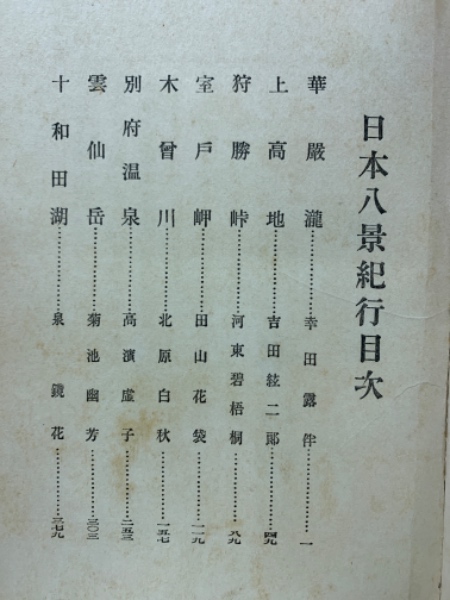 日本八景紀行目次
華嚴瀧…………幸田露伴…………一
上高地…………吉田絃二郎…………四九
狩勝峠…………河東碧梧桐…………八九
室戸岬…………田山花袋…………一一九
木曾川…………北原白秋…………一五七
別府温泉…………高濱虚子…………二五三
雲仙岳…………菊池幽芳…………三〇三
十和田湖…………泉鏡花…………三七九